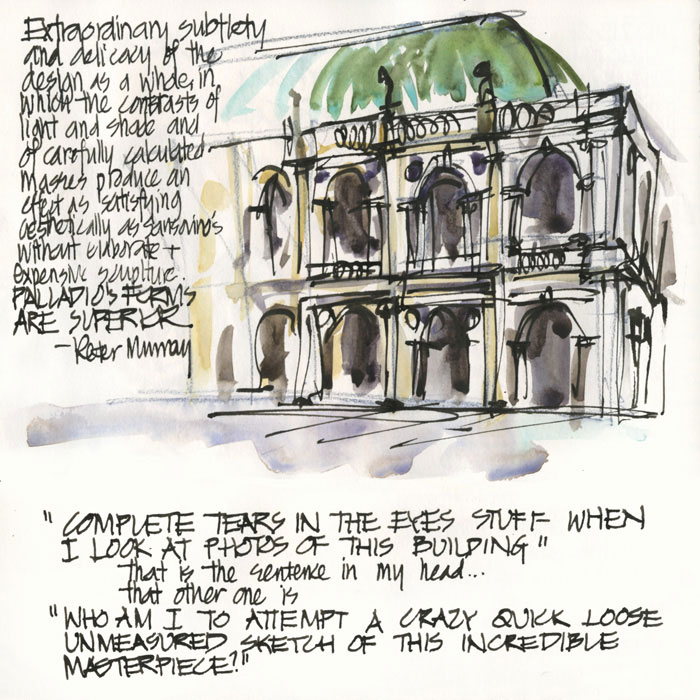 Extraordinary subtlety
and delicacy of the
design as a whole, in
which the contrasts of
light and shade and
of carefully calculated
masses produce an
effect as satisfying
aesthetically as Sansovino's
without elaborate +
expensive sculpture.
PALLADIO'S FORMS
ARE SUPERIOR
- Peter Murray
"COMPLETE TEARS IN THE EYES STUFF WHEN
I LOOK AT PHOTOS OF THIS BUILDING"
that is the sentence in my head...
that other one is
"WHO AM I TO ATTEMPT A CRAZY QUICK LOOSE
UNMEASURED SKETCH OF THIS INCREDIBLE
MASTERPIECE?"